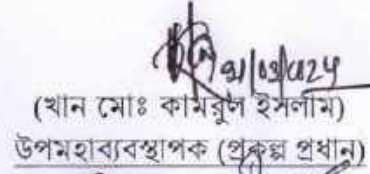 (খান মোঃ কামরুল ইসলাম)
উপমহাব্যবস্থাপক (প্রকল্প প্রধান)